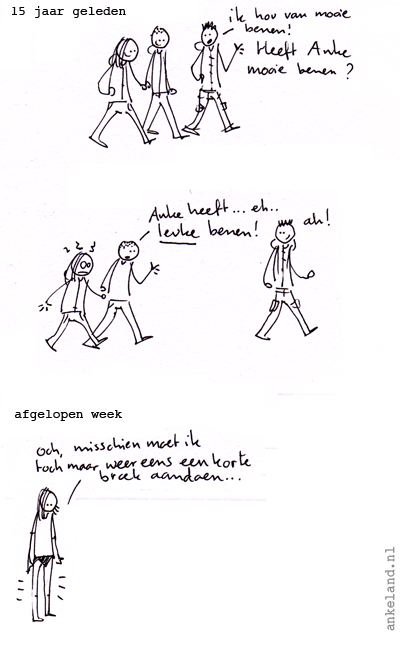 15 jaar geleden
ik hou van mooie
benen!
Heeft Anke
mooie benen?
Anke heeft... eh..
leuke benen!
ah!
afgelopen week
och, misschien moet ik
toch maar weer eens een korte
broek aandoen...
ankeland.nl